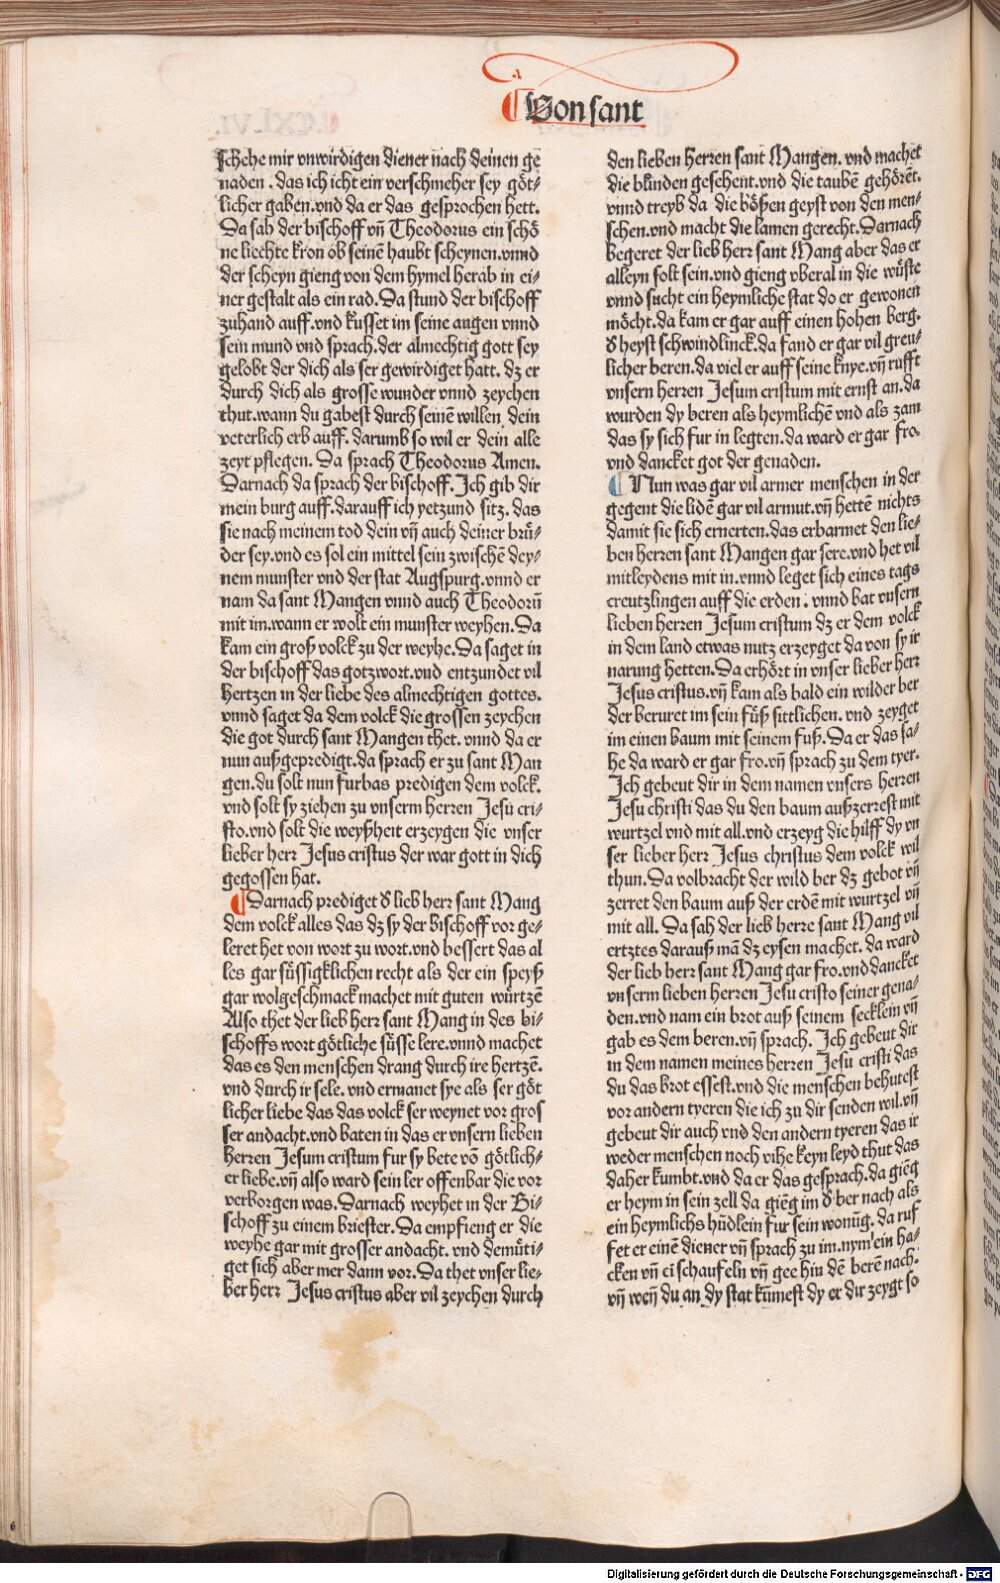 ¶ Von sant
schehe mir vnwirdigen diener nach deinen ge
naden . das ich icht ein verschmeher sey göt⸗
licher gaben. vnd da er das gesprochen hett.
Da sah der bischoff vn̄ Theodorus ein schö
ne liechte kron ob seinē haubt scheynen. vnnd
der scheyn gieng von dem hymel herab in ei⸗
ner gestalt als ein rad. Da stund der bischoff
zuhand auff. vnd kusset im seine augen vnnd
sein mund vnd sprach. der almechtig gott sey
gelobt der dich als ser gewirdiget hatt. dz er
durch dich als grosse wunder vnnd zeychen
thut. wann du gabest durch seinē willen dein
veterlich erb auff. darumb so wil er dein alle
zeyt pflegen. Da sprach Theodorus Amen.
Darnach da sprach der bischoff. Ich gib dir
mein burg auff. darauff ich yetzund sitz. das
sie nach meinem tod dein vn̄ auch deiner brü⸗
der sey. vnd es sol ein mittel sein zwischē dey⸗
nem munster vnd der stat Augspurg. vnnd er
nam da sant Mangen vnnd auch Theodorū
mit im. wann er wolt ein munster weyhen. Da
kam ein groß volck zu der weyhe. Da saget in
der bischoff das gotzwort. vnd entzundet vil
hertzen in der liebe des almechtigen gottes.
vnnd saget da dem volck die grossen zeychen
die got durch sant Mangen thet. vnnd da er
nun außgepredigt. da sprach er zu sant Man
gen. du solt nun furbas predigen dem volck.
vnd solt sy ziehen zu vnserm herren Jesu cri⸗
sto. vnd solt die weyßheit erzeygen die vnser
lieber herr Jesus cristus der war gott in dich
gegossen hat.
¶ Darnach prediget d lieb herr sant Mang
dem volck alles das dz sy der bischoff vor ge⸗
leret het von wort zu wort. vnd bessert das al
les gar süssigklichen recht als der ein speyß
gar wolgeschmack machet mit guten würtzē
Also thet der lieb herr sant Mang in des bi⸗
schoffs wort götliche süsse lere. vnnd machet
das es den menschen drang durch ire hertzē.
vnd durch ir sele. vnd ermanet sye als ser göt
licher liebe das das volck ser weynet vor gros
ser andacht. vnd baten in das er vnsern lieben
herzen Jesum cristum fur sy bete vō götlich⸗
er liebe. vn̄ also ward sein ler offenbar die vor
verborgen was. Darnach weyhet in der Bi⸗
schoff zu einem briester. Da empfieng er die
weyhe gar mit grosser andacht. vnd demüti⸗
get sich aber mer dann vor. Da thet vnser lie⸗
ber herr Jesus cristus aber vil zeychen durch
den lieben herren sant Mangen. vnd machet
die blinden gesehent. vnd die taubē gehörēt.
vnnd treyb da die bößen geyst von den men⸗
schen. vnd macht die lamen gerecht. Darnach
begeret der lieb herr sant Mang aber das er
alleyn solt sein. vnd gieng vberal in die wüste
vnnd sucht ein heymliche stat do er gewonen
möcht. da kam er gar auff einen hohen berg.
d heyst schwindlinck. da fand er gar vil greu⸗
licher beren. da viel er auff seine knye. vn̄ rufft
vnsern herren Jesum cristum mit ernst an. da
wurden dy beren als heymlichē vnd als zam
das sy sich fur in legten. da ward er gar fro.
vnd dancket got der genaden.
¶ Nun was gar vil armer menschen in der
gegent die lidē gar vil armut. vn̄ hettē nichts
damit sie sich ernerten. das erbarmet den lie⸗
ben herren sant Mangen gar sere. vnd het vil
mitleydens mit in. vnnd leget sich eines tags
creutzlingen auff die erden . vnnd bat vnsern
lieben herren Jesum cristum dz er dem volck
in dem land etwas nutz erzeyget da von sy ir
narung hetten. Da erhört in vnser lieber herr
Jesus cristus. vn̄ kam als bald ein wilder ber
der beruret im sein füß sittlichen. vnd zeyget
im einen baum mit seinem fuß. Da er das sa⸗
he da ward er gar fro. vn̄ sprach zu dem tyer.
Ich gebeut dir in dem namen vnsers herren
Jesu christi das du den baum außzerrest mit
wurtzel vnd mit all. vnd erzeyg die hilff dy vn
ser lieber herr Jesus christus dem volck wil
thun. Da volbracht der wild ber dz gebot vn̄
zerret den baum auß der erdē mit wurtzel vn̄
mit all. Da sah der lieb herre sant Mang vil
ertztes darauß mā dz eysen machet. da ward
der lieb herr sant Mang gar fro. vnd dancket
vnserm lieben herren Jesu cristo seiner gena⸗
den. vnd nam ein brot auß seinem secklein vn̄
gab es dem beren. vn̄ sprach. Ich gebeut dir
in dem namen meines herren Jesu cristi das
du das brot essest. vnd die menschen behutest
vor andern tyeren die ich zu dir senden wil. vn̄
gebeut dir auch vnd den andern tyeren das ir
weder menschen noch vihe keyn leyd thut das
daher kumbt. vnd da er das gesprach. da giēg
er heym in sein zell da giēg im d ber nach als
ein heymlichs hūdlein fur sein wonūg. da ruf
fet er einē diener vn̄ sprach zu im. nym ein ha⸗
cken vn̄ ei schaufeln vn̄ gee hin dē berē nach.
vn̄ wen̄ du an dy stat kūmest dy er dir zeygt so
Digitalisierung gefördert durch die Deutsche Forschungsgemeinschaft - DFG